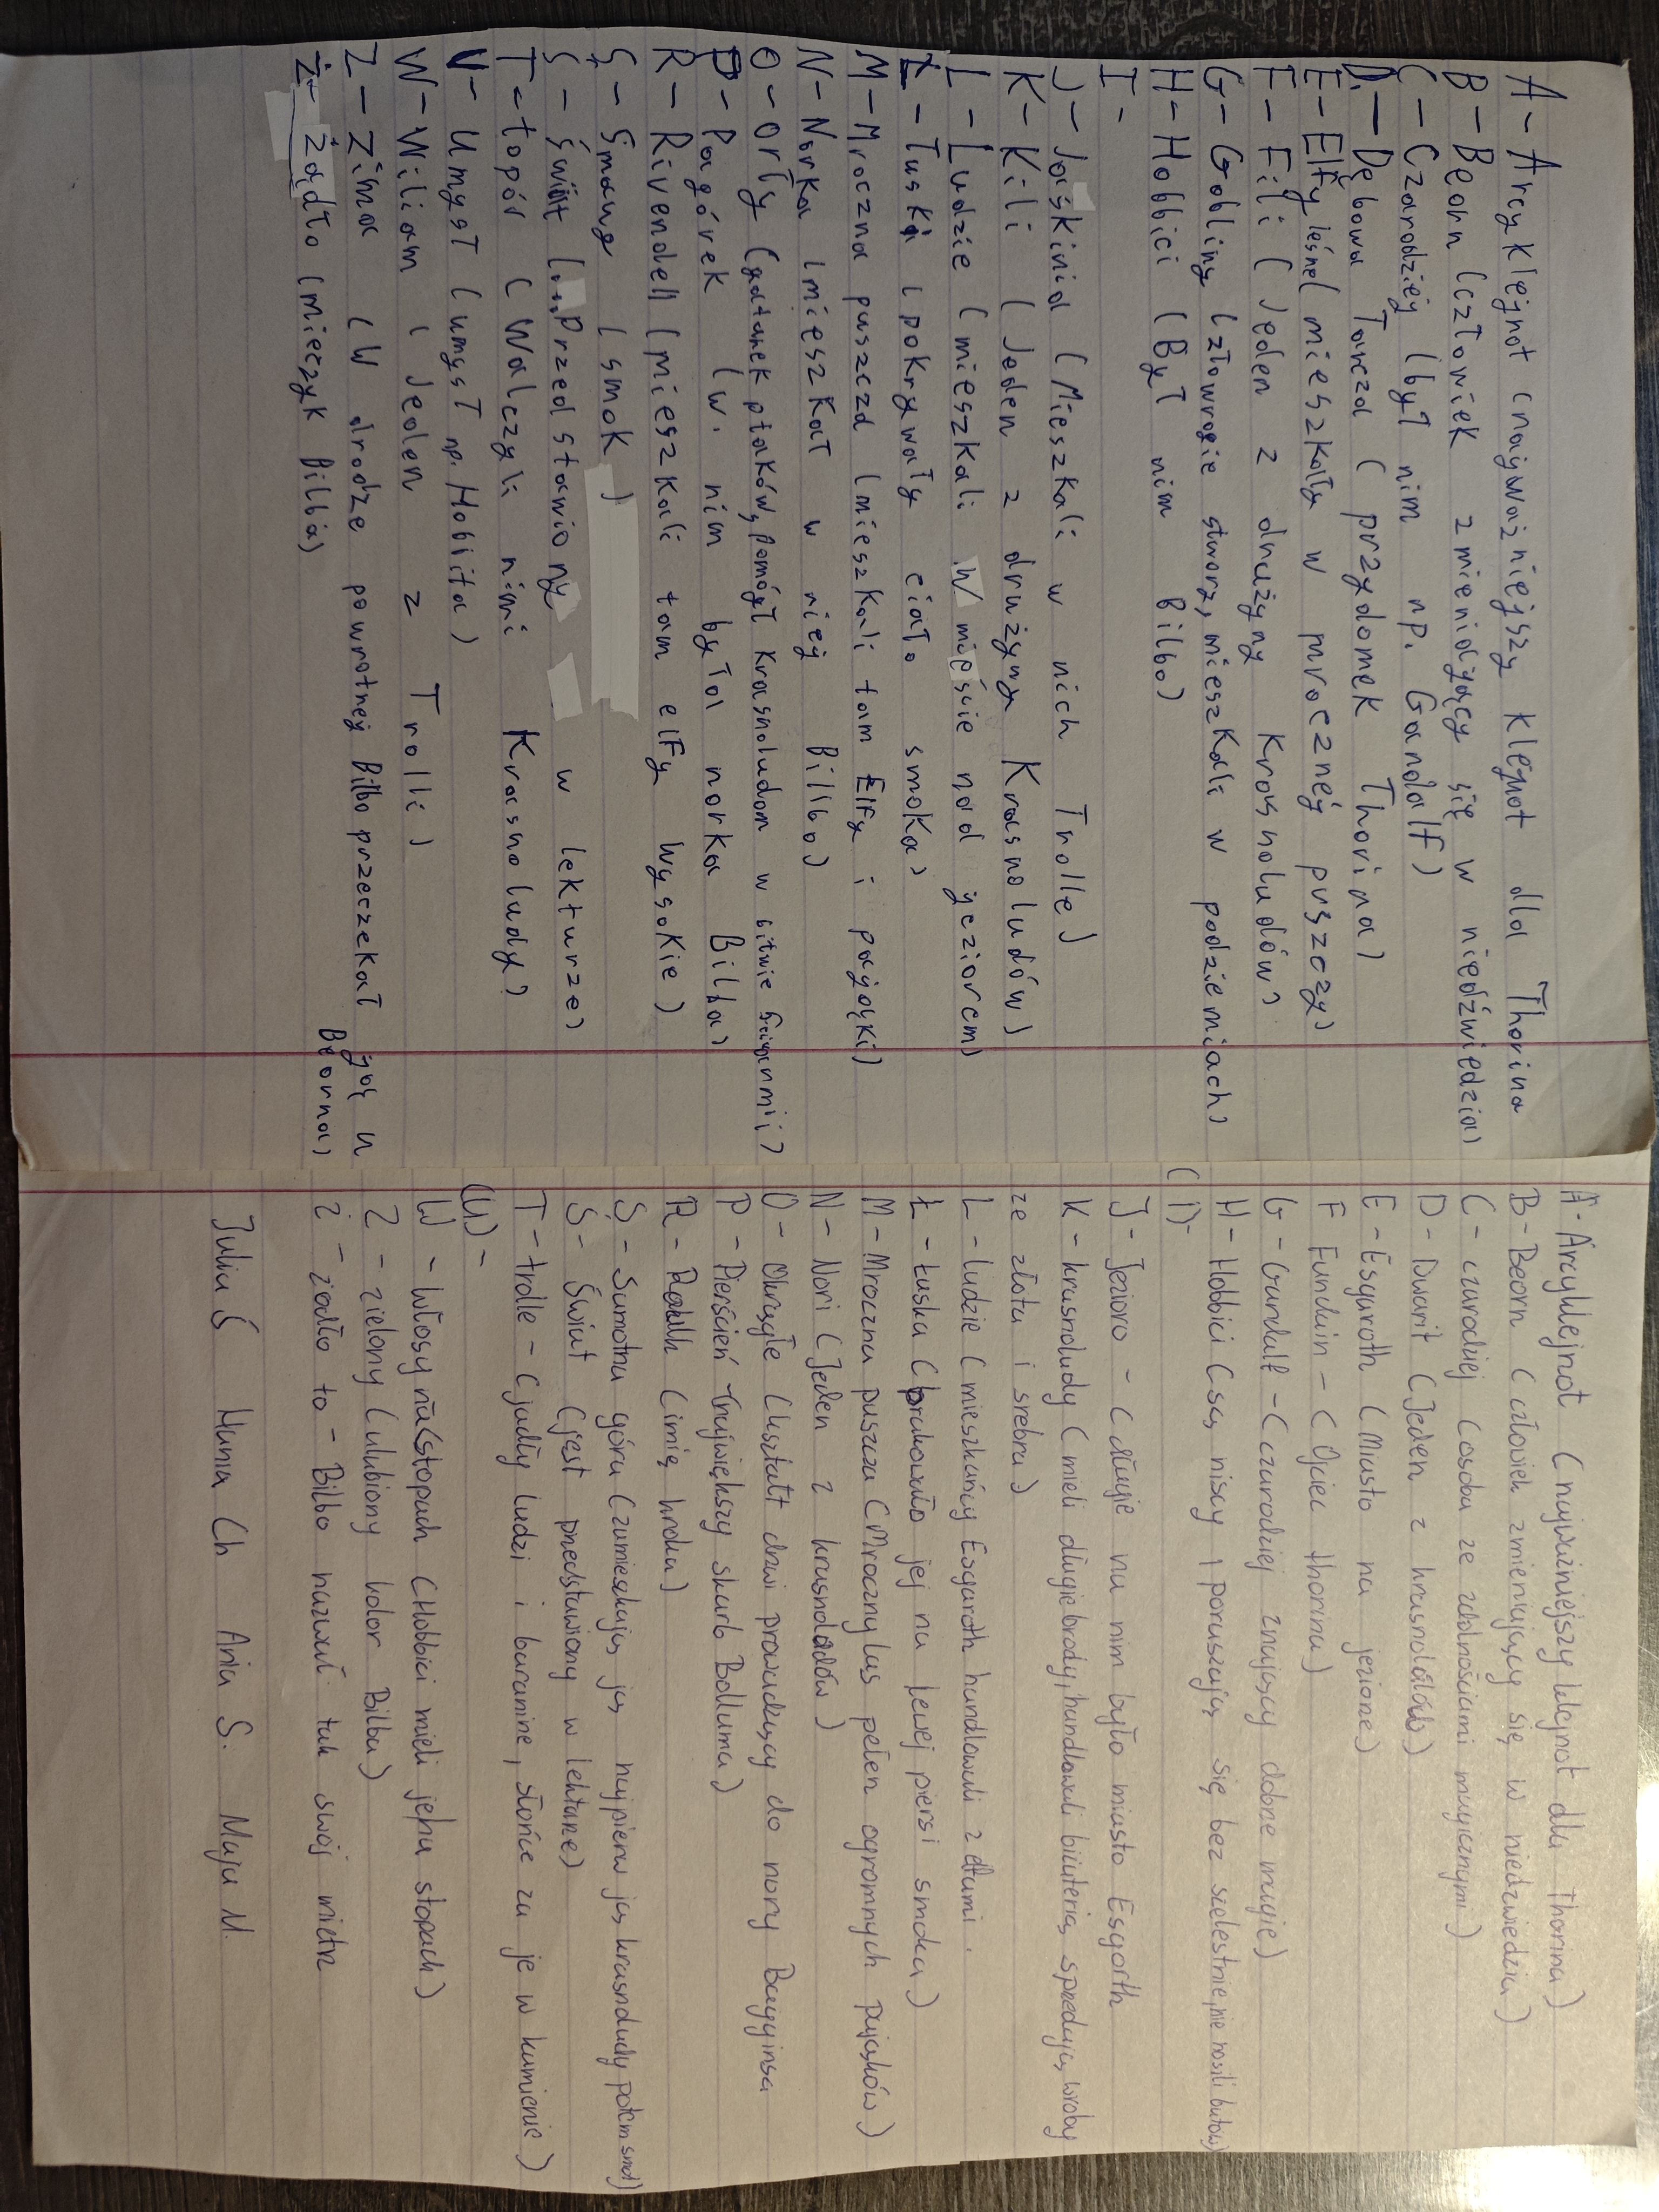 A - Arcyklejnot (najważniejszy klejnot dla Thorina
B - Beorn (człowiek zmieniający się w niedźwiedzia)
C - Czarodziej (był nim np. Gandalf)
D - Dębowa Tarcza (przydomek Thorina)
E - Elfy leśne (mieszkały w mrocznej puszczy)
F - Fili (Jeden z drużyny Krasnoludów)
G - Gobliny (złowrogie stworz, mieszkali w podziemiach)
H - Hobbici (Był nim Bilbo)
I -
J - Jaskinia (Mieszkali w nich Trolle)
K - Kili (Jeden z drużyny Krasnoludów)
L - Ludzie (mieszkali w mieście nad jeziorem)
Ł - Łuska (pokrywały ciało smoka)
M - Mroczna puszcza (mieszkali tam Elfy i pająki)
N - Norka (mieszkał w niej Bilbo)
O - Orły (gatunek ptaków, pomógł Krasnoludom w bitwie 5 armii)
P - Pagórek (w nim była norka Bilba)
R - Rivendell (mieszkali tam elfy wysokie)
S - Smaug (smok)
Ś - Świat (Przedstawiony w lekturze)
T - topór (Walczyli nimi Krasnoludy)
U - Umysł (umysł np. Hobita)
W - Wiliam (Jeden z Trolli)
Z - Zima (W drodze powrotnej Bilbo przeczekał ją u
Beorna)
Ż - Żądło (mieczyk Bilba)
A - Arcyklejnot (najważniejszy klejnot dla Thorina)
B - Beorn (człowiek zmieniający się w niedzwiedzia)
C - czarodziej (osoba ze zdolnościami magicznymi)
D - Dwarit (Jeden z krasnoludów)
E - Esgaroth (Miasto na jeziorze)
F Fundin - (Ojciec thorina)
G - Gandalf - (czarodziej znający dobrze magię)
H - Hobbici (są niscy i poruszają się bez szelestnie, nie nosili butów)
(I) -
J - Jezioro - (długie na nim było miasto Esgorth
K - krasnoludy (mieli długie brody, handlowali biżuterią, sprzedują wroby
ze złota i srebra)
L - ludzie (mieszkańcy Esgaroth handlowali z elfami.
Ł - Łuska (brakowało jej na lewej piersi smoka)
M - Mroczna puszcza (Mroczny las pełen ogromnych pająków)
N - Nori (Jeden z krasnoludów)
O - Okrągłe (kształt drzwi prowadzący do nory Bagginsa
P - Pierścień - (największy skarb Golluma)
R - Roäk (imię kruka)
S - Samotna góra (zamieszkują ją najpierw ją krasnoludy potem smok)
Ś - Świat (jest przedstawiony w lekturze)
T - trolle - (jadły ludzi i baraninę, słońce za je w kamienie)
(U) -
W - Włosy na (stopach (Hobbici mieli jehu stopach)
Z - zielony (ulubiony kolor Bilba)
Ż - żądło to - Bilbo nazwał tak swój miecz
Julia Ś Hania Ch Ania S. Maja M.